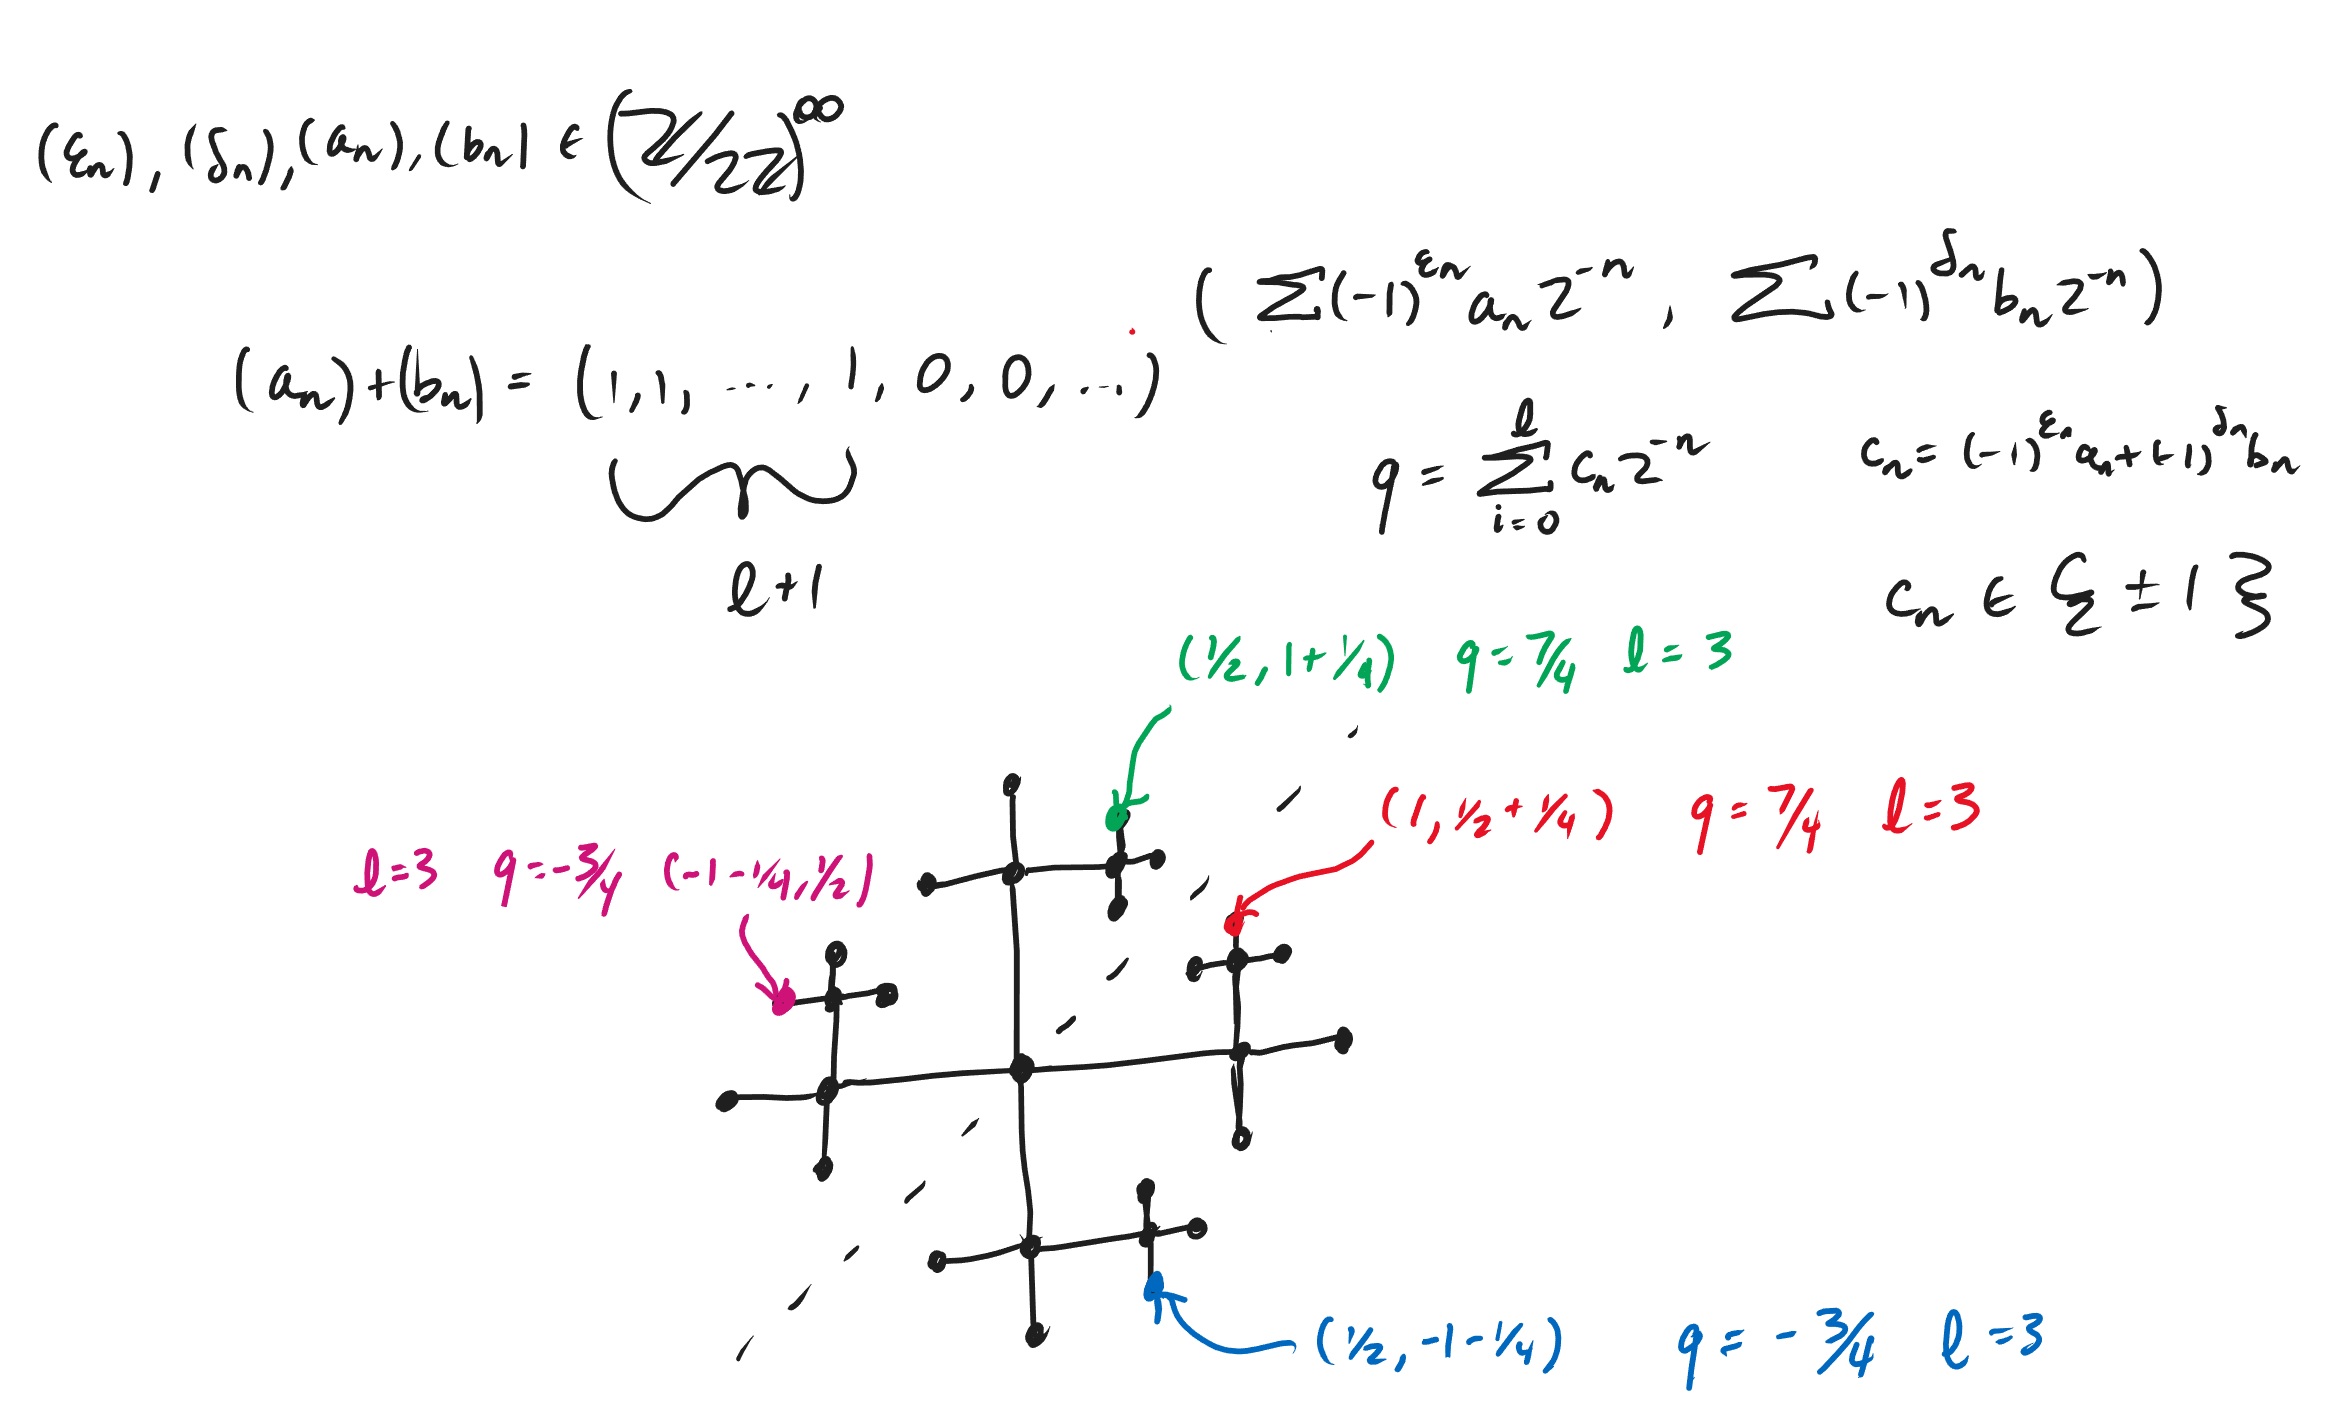 (εₙ), (δₙ), (aₙ), (bₙ) ∈ (ℤ/2ℤ)^∞
( Σ(-1)^{εₙ} aₙ 2^{-n} , Σ(-1)^{δₙ} bₙ 2^{-n} )
(aₙ)+(bₙ) = (1, 1, ..., 1, 0, 0, ...)
l+1
q = Σ_{i=0}^{l} cₙ 2^{-n}
cₙ = (-1)^{εₙ} aₙ + (-1)^{δₙ} bₙ
cₙ ∈ { ± 1 }
(1/2, 1+1/4) q = 7/4 l = 3
(1, 1/2 + 1/4) q = 7/4 l = 3
l = 3 q = -3/4 (-1 - 1/4, 1/2)
(1/2, -1 - 1/4) q = -3/4 l = 3